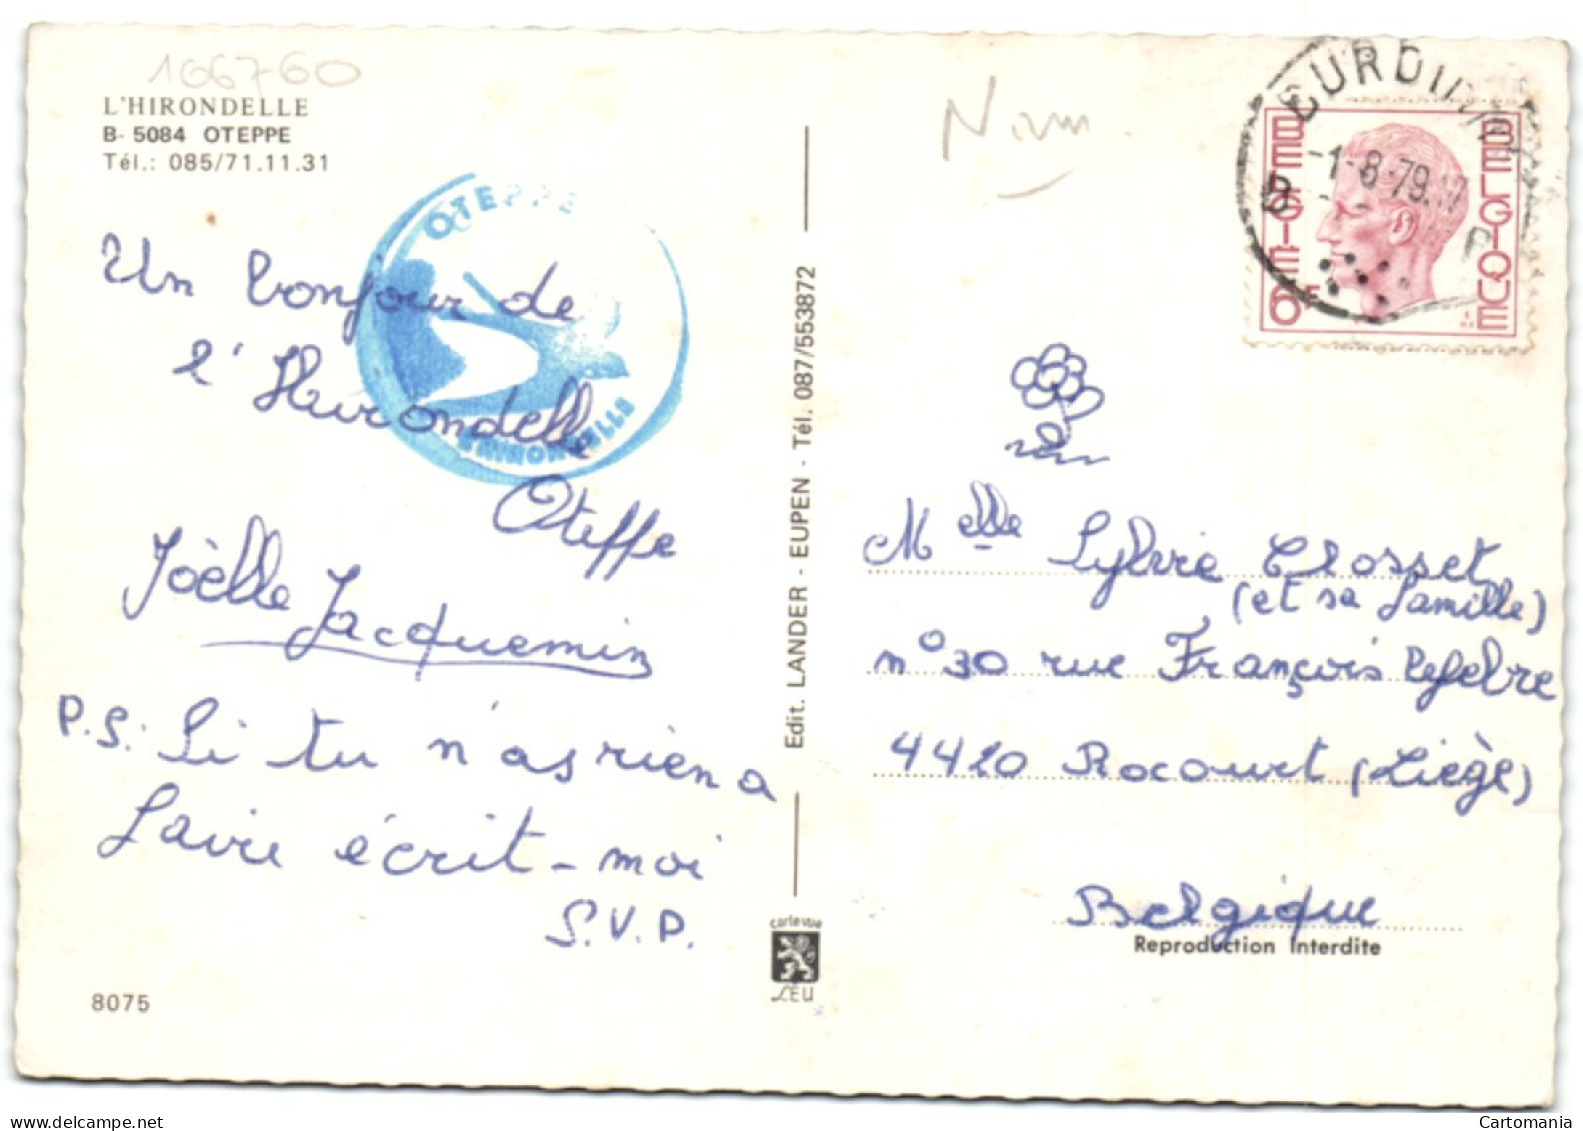 166760
L'HIRONDELLE
B- 5084 OTEPPE
Tél.: 085/71.11.31
OTEPPE
Un bonjour de
l'Hirondelle
Oteppe
Joëlle Jacquemin
P.S: Si tu n'as rien a
faire écrit-moi
S.V.P.
8075
Edit. LANDER - EUPEN - Tél. 087/553872
carte vue
LEU
BELGIE 6F
BELGIQUE
-1-8-79
B
Melle Sylvie Closset
(et sa famille)
n° 30 rue François Lefebvre
4420 Rocourt (Liège)
Belgique
Reproduction Interdite
Cartomania